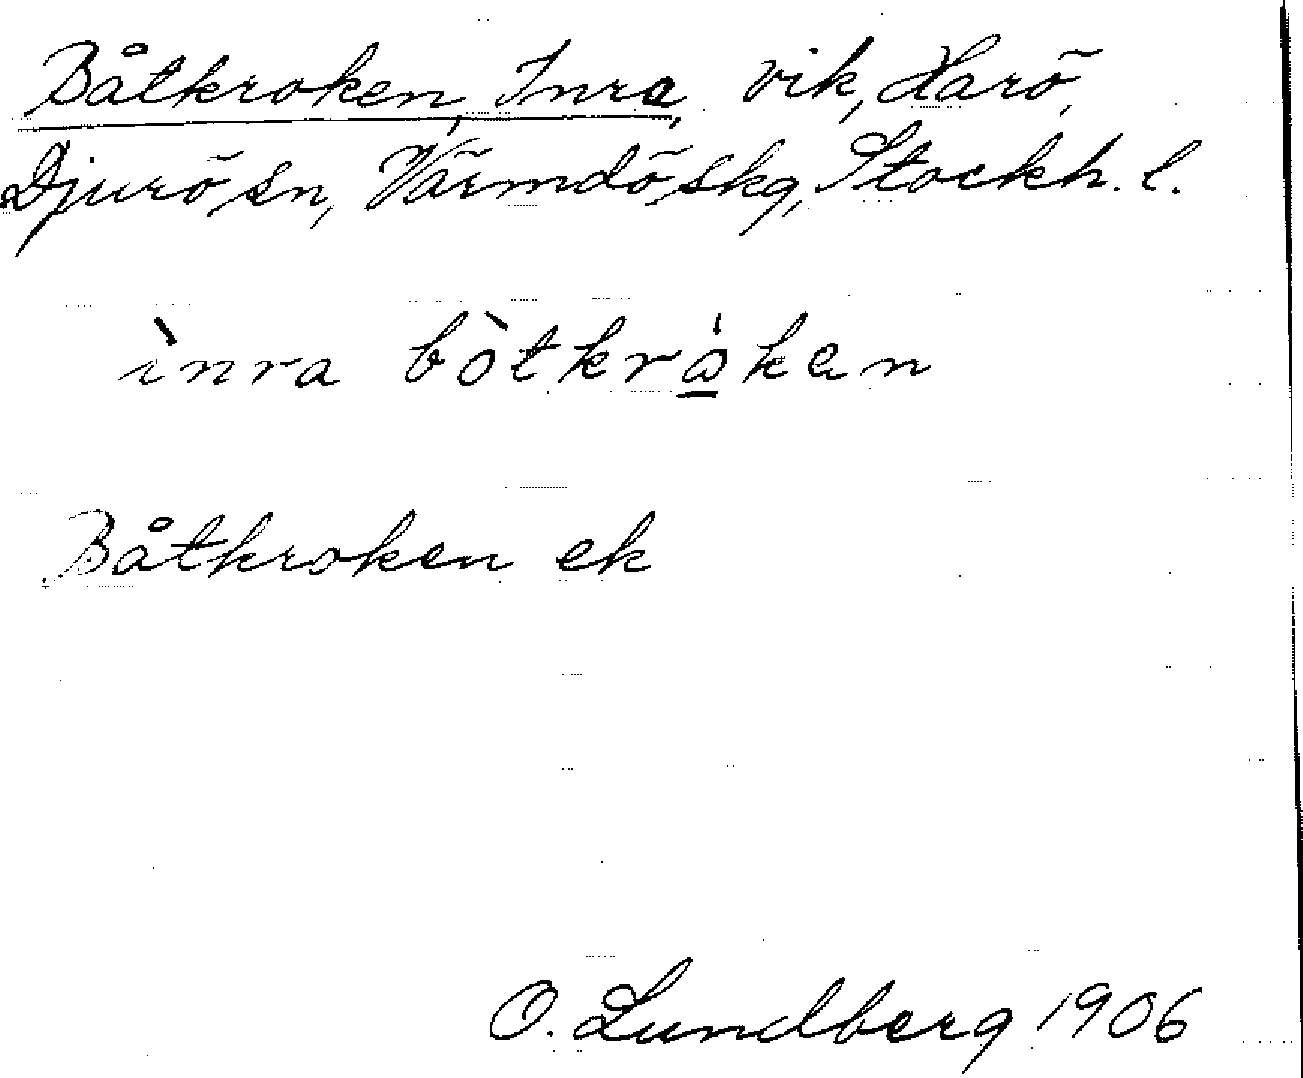 Båtkroken, Inra, vik, Harö,
Djurö sn, Värmdö skg, Stockh. l.
ìnra bòtkrȯ̲ken
Båtkroken ek
O. Lundberg 1906